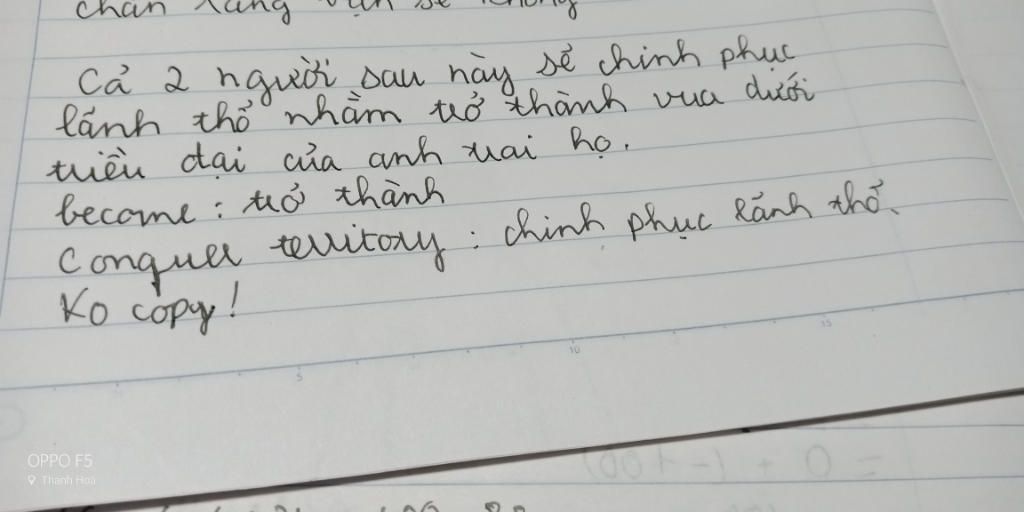 chân
Cả 2 người sau này sẽ chinh phục
lãnh thổ nhằm trở thành vua dưới
triều đại của anh trai họ.
become : trở thành
Conquer territory : chinh phục lãnh thổ.
Ko copy !
5
10
15
= 0 + (-+00)
OPPO F5
Thanh Hoá